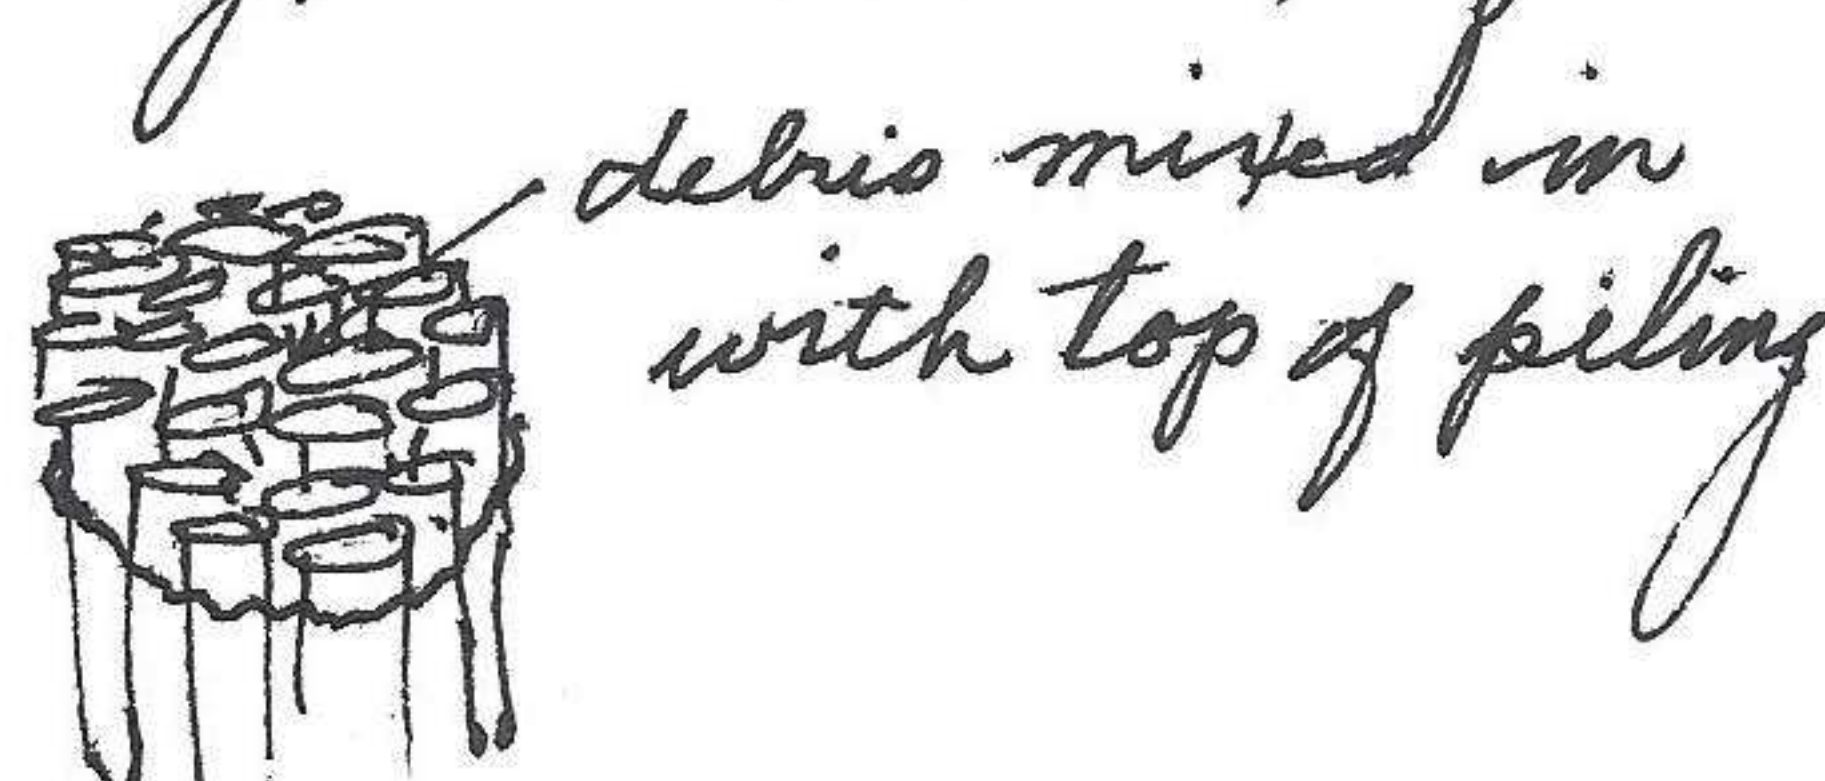 debris mixed in
with top of piling